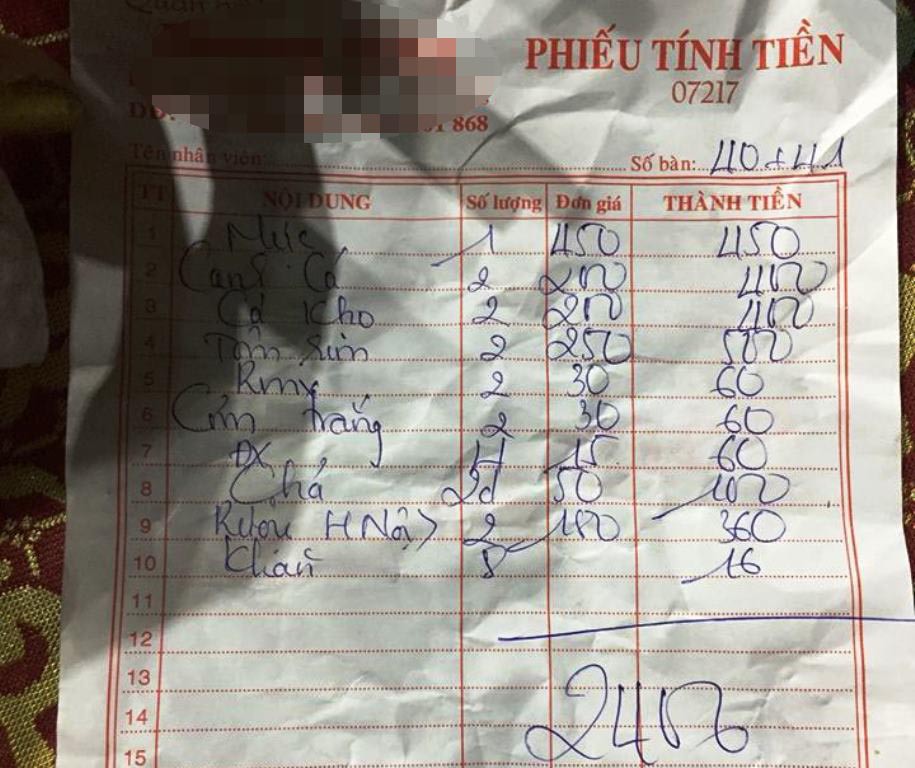 Quán
PHIẾU TÍNH TIỀN
07217
868
Tên nhân viên: Số bàn: 40+41
TT NỘI DUNG Số lượng Đơn giá THÀNH TIỀN
1 Mực 1 450 450
2 Canh Cá 2 200 400
3 Cá Kho 2 200 400
4 Tôm 2 250 500
5 Rmx 2 30 60
6 Cơm trắng 2 30 60
7 ĐX 4 15 60
8 Chả 2d 50 100
9 Rượu HNội 2 180 360
10 Khăn 8 16
11
12
13
14
15
2400